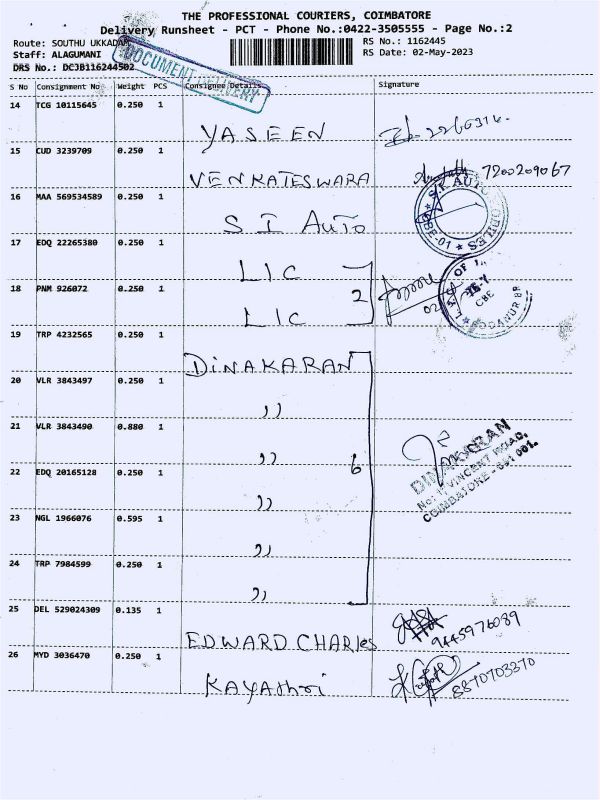 THE PROFESSIONAL COURIERS, COIMBATORE
Delivery Runsheet - PCT - Phone No.:0422-3505555 - Page No.:2
Route: SOUTHU UKKADAM
RS No.: 1162445
Staff: ALAGUMANI
RS Date: 02-May-2023
DRS No.: DC3B116244502
DOCUMENT DELIVERY
S No Consignment No Weight PCS Consignee Details Signature
14 TCG 10115645 0.250 1
YASEEN
15 CUD 3239709 0.250 1
VENKATESWARA 7200209067
16 MAA 569534589 0.250 1
S I Auto
17 EDQ 22265380 0.250 1
LIC
18 PNM 926072 0.250 1
2
LIC
19 TRP 4232565 0.250 1
DINAKARAN
20 VLR 3843497 0.250 1
,,
21 VLR 3843490 0.880 1
,, 6
DINAKARAN
No: 1, VINCENT ROAD,
COIMBATORE - 641 001.
22 EDQ 20165128 0.250 1
,,
23 NGL 1966076 0.595 1
,,
24 TRP 7984599 0.250 1
,,
25 DEL 529024309 0.135 1
EDWARD CHARLES 9445976089
26 MYD 3036470 0.250 1
Kayathri 8870703370